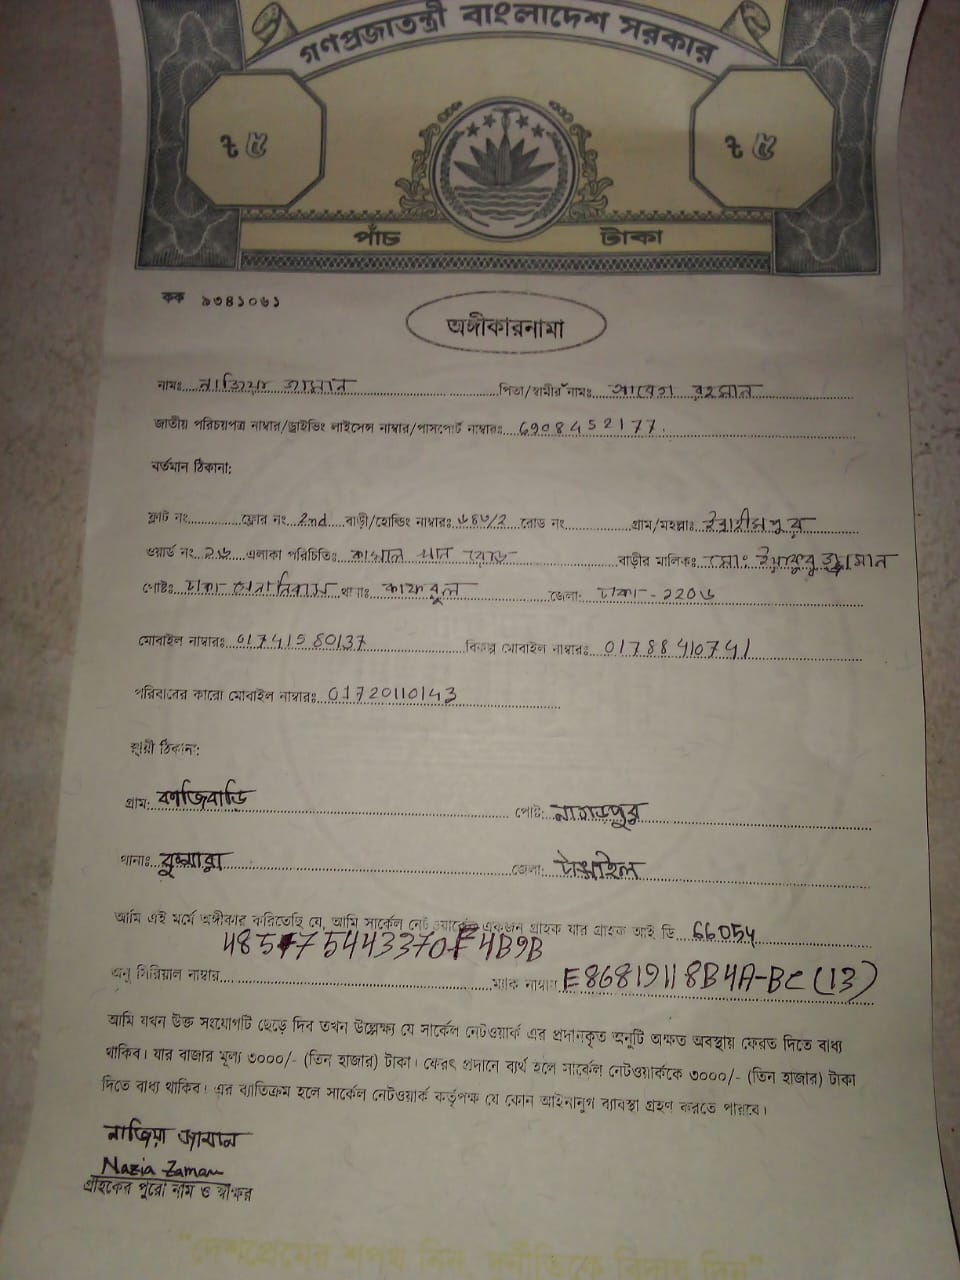 গণপ্রজাতন্ত্রী বাংলাদেশ সরকার
৳ ৫ ৳ ৫
পাঁচ টাকা
কক ৯৩৪১০৬১
অঙ্গীকারনামা
নামঃ নাজিয়া জামান পিতা/স্বামীর নামঃ রহমান
জাতীয় পরিচয়পত্র নাম্বার/ড্রাইভিং লাইসেন্স নাম্বার/পাসপোর্ট নাম্বারঃ 6908452177.
বর্তমান ঠিকানা:
ফ্লাট নং ফ্লোর নং 2nd বাড়ী/হোল্ডিং নাম্বারঃ রোড নং গ্রাম/মহল্লাঃ ইব্রাহীমপুর
ওয়ার্ড নং ১৬ এলাকা পরিচিতিঃ খান রোড বাড়ীর মালিকঃ মোঃ
পোষ্টঃ ঢাকা সেনানিবাস থানাঃ কাফরুল জেলা: ঢাকা - ১২০৬
মোবাইল নাম্বারঃ 01741580137 বিকল্প মোবাইল নাম্বারঃ 01788410741
পরিবারের কারো মোবাইল নাম্বারঃ 01720110143
স্থায়ী ঠিকানা:
গ্রাম: পোষ্ট: নাগরপুর
থানাঃ জেলা: টাঙ্গাইল
আমি এই মর্মে অঙ্গীকার করিতেছি যে, আমি সার্কেল নেটওয়ার্কের একজন গ্রাহক যার গ্রাহক আই ডি 66054
485775443370F4B9B
অনু সিরিয়াল নাম্বার ম্যাক নাম্বার E86819118B4A-BC (13)
আমি যখন উক্ত সংযোগটি ছেড়ে দিব তখন উল্লেক্ষ্য যে সার্কেল নেটওয়ার্ক এর প্রদানকৃত অনুটি অক্ষত অবস্থায় ফেরত দিতে বাধ্য
থাকিব। যার বাজার মূল্য ৩০০০/- (তিন হাজার) টাকা। ফেরৎ প্রদানে ব্যর্থ হলে সার্কেল নেটওয়ার্ককে ৩০০০/- (তিন হাজার) টাকা
দিতে বাধ্য থাকিব। এর ব্যাতিক্রম হলে সার্কেল নেটওয়ার্ক কর্তৃপক্ষ যে কোন আইনানুগ ব্যাবস্থা গ্রহণ করতে পারবে।
নাজিয়া জামান
Nazia Zaman
গ্রাহকের পুরো নাম ও স্বাক্ষর
"দেশপ্রেমের শপথ নিন, দুর্নীতিকে বিদায় দিন"